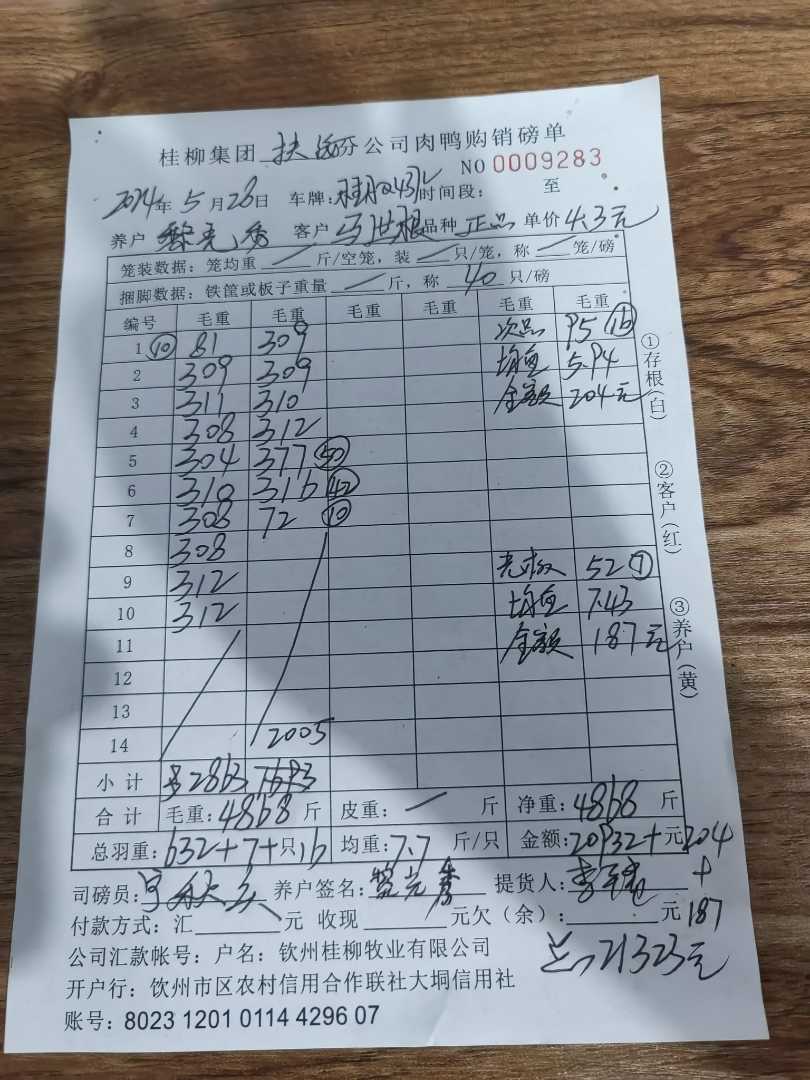 桂柳集团 扶绥分公司肉鸭购销磅单
NO 0009283
2024年 5月28日 车牌: 时间段: 至
养户 客户 马世根 品种 正品 单价 4.3元
笼装数据: 笼均重 / 斤/空笼, 装 / 只/笼, 称 / 笼/磅
捆脚数据: 铁筐或板子重量 / 斤, 称 40 只/磅
编号 毛重 毛重 毛重 毛重 毛重 毛重
1 ⑩ 81 309 次品 95 ⑯
2 309 309 均重 5.94
3 311 310 金额 204元
4 308 312
5 304 377 ㊿
6 310 316 ㊷
7 308 72 ⑩
8 308
9 312 52 ⑦
10 312 均重 7.43
11 金额 187元
12
13
14 2005
小计 2863
合计 毛重: 4868 斤 皮重: / 斤 净重: 4868 斤
总羽重: 632+7+只16 均重: 7.7 斤/只 金额: 20932+元204
+
187
司磅员: 养户签名: 提货人:
付款方式: 汇 元 收现 元欠(余): 元
总 21323元
公司汇款帐号: 户名: 钦州桂柳牧业有限公司
开户行: 钦州市区农村信用合作联社大垌信用社
账号: 8023 1201 0114 4296 07
①存根(白)
②客户(红)
③养户(黄)